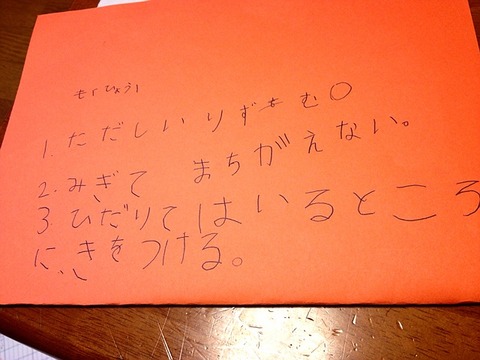 もくひょう
1. ただしいりずむ〇
2. みぎて まちがえない。
3. ひだりてはいるところ
にきをつける。